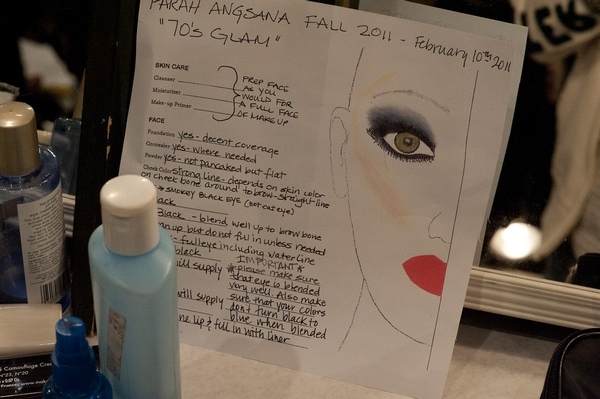 PARAH ANGSANA FALL 2011 - February 10th 2011
"70's GLAM"
SKIN CARE
Cleanser
Moisturizer
Make-up Primer
PREP FACE
AS YOU
WOULD FOR
A FULL FACE
OF MAKEUP
FACE
Foundation yes - decent coverage
Concealer yes - where needed
Powder yes - not pancaked but flat
Cheek Color strong line - depends on skin color
on cheek bone around to brow - straight line
→ SMOKEY BLACK EYE (not cat eye)
Black - blend well up to brow bone
up but do not fill in unless needed
full eye including waterline
black
will supply
will supply
line lip & fill in with liner
*IMPORTANT*
please make sure
that eye is blended
very well. Also make
sure that your colors
don't turn black to
blue when blended
Camouflage Cre
N°23, N°20